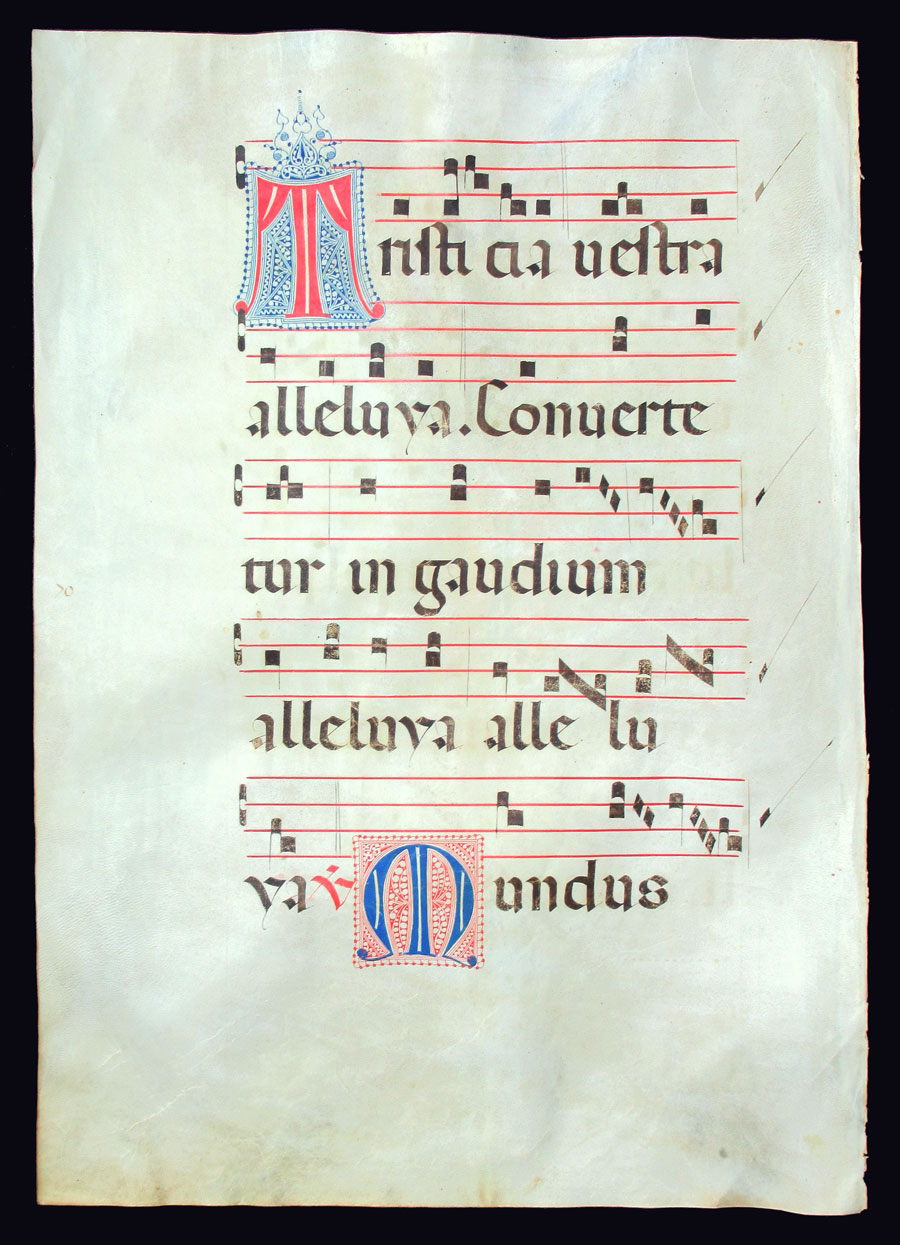 Tristi cia uestra
alleluya. Conuerte
tur in gaudium
alleluya alle lu
ya ℣ Mundus